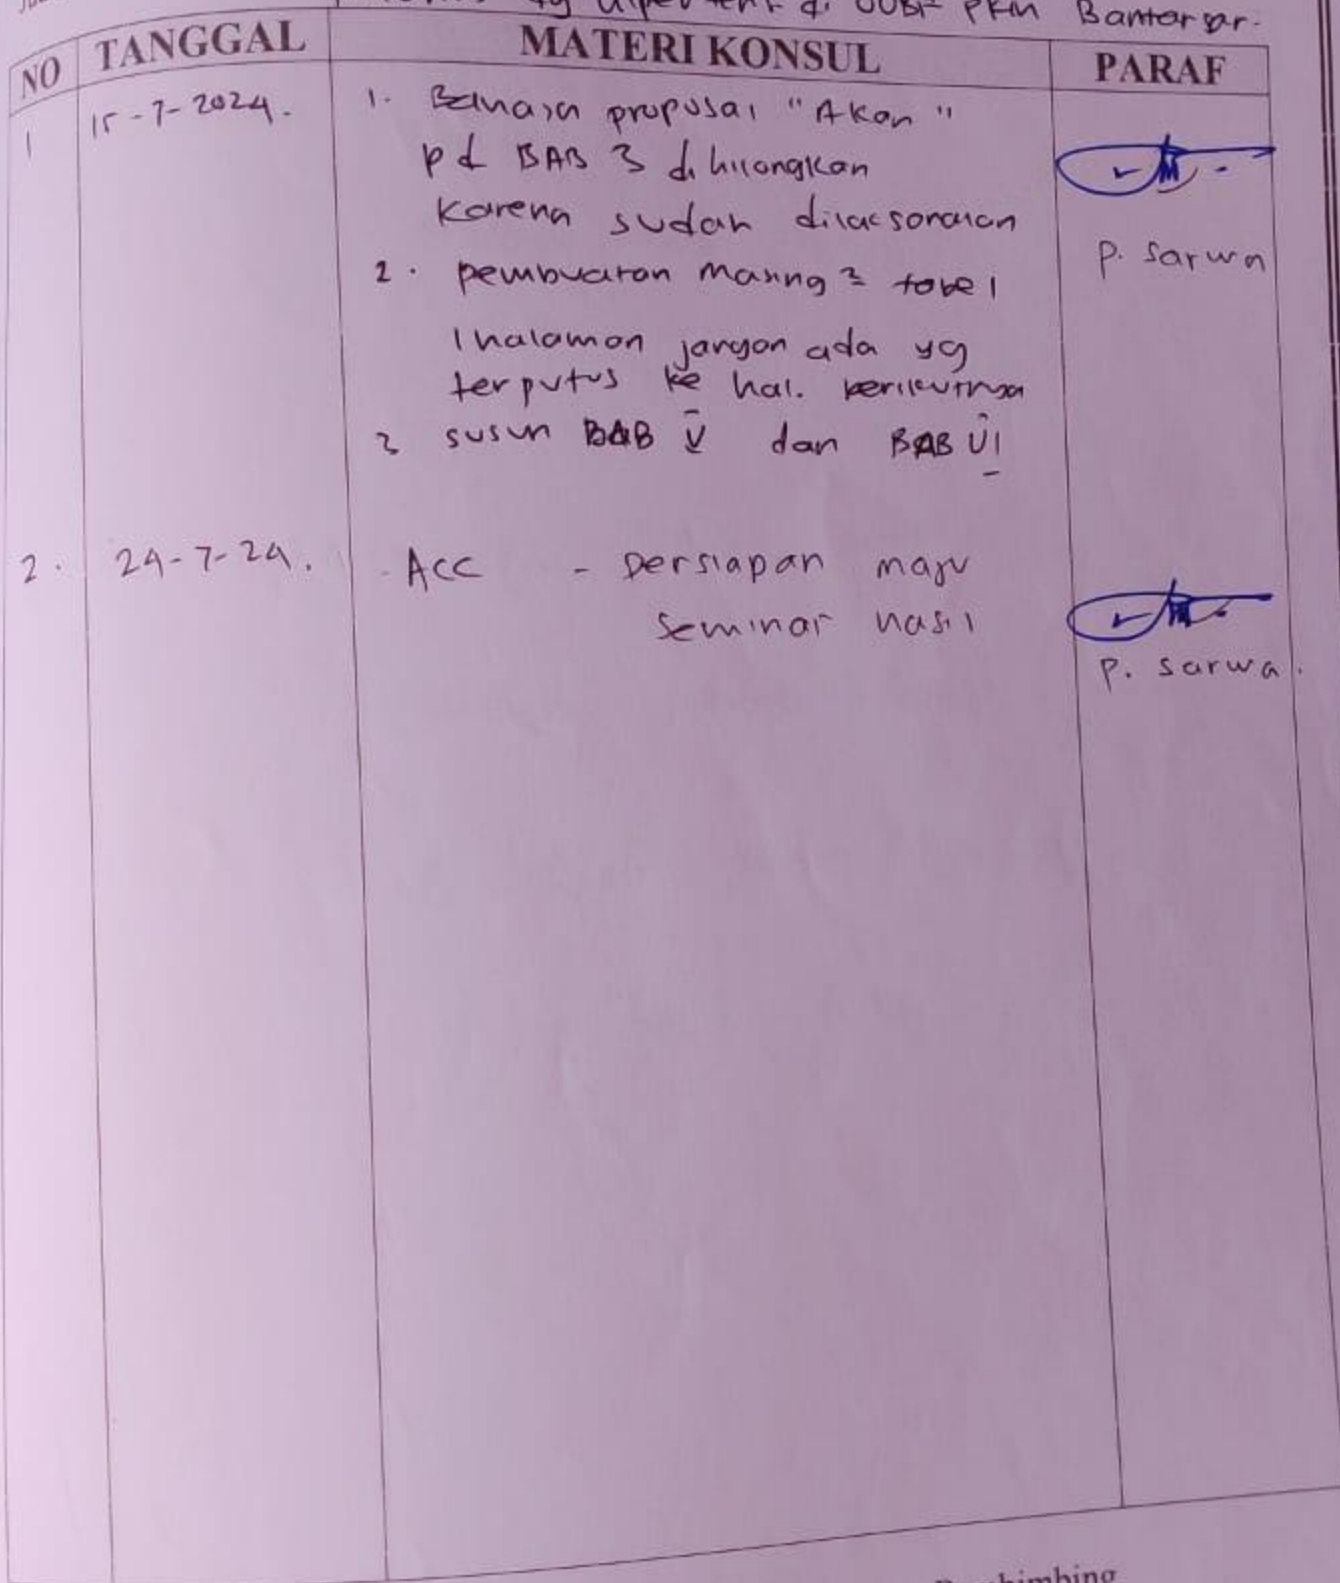 di PKM Bantarsar.
NO TANGGAL MATERI KONSUL PARAF
1 15-7-2024. 1. Bahasa proposal "Akan"
pd BAB 3 dihilangkan
karena sudah dilaksanakan
P. Sarwa
2. pembuatan masing2 tabel
1 halaman jangan ada yg
terputus ke hal. berikutnya
3 susun BAB V dan BAB VI
2. 24-7-24. Acc - persiapan maju
seminar hasil
P. Sarwa.